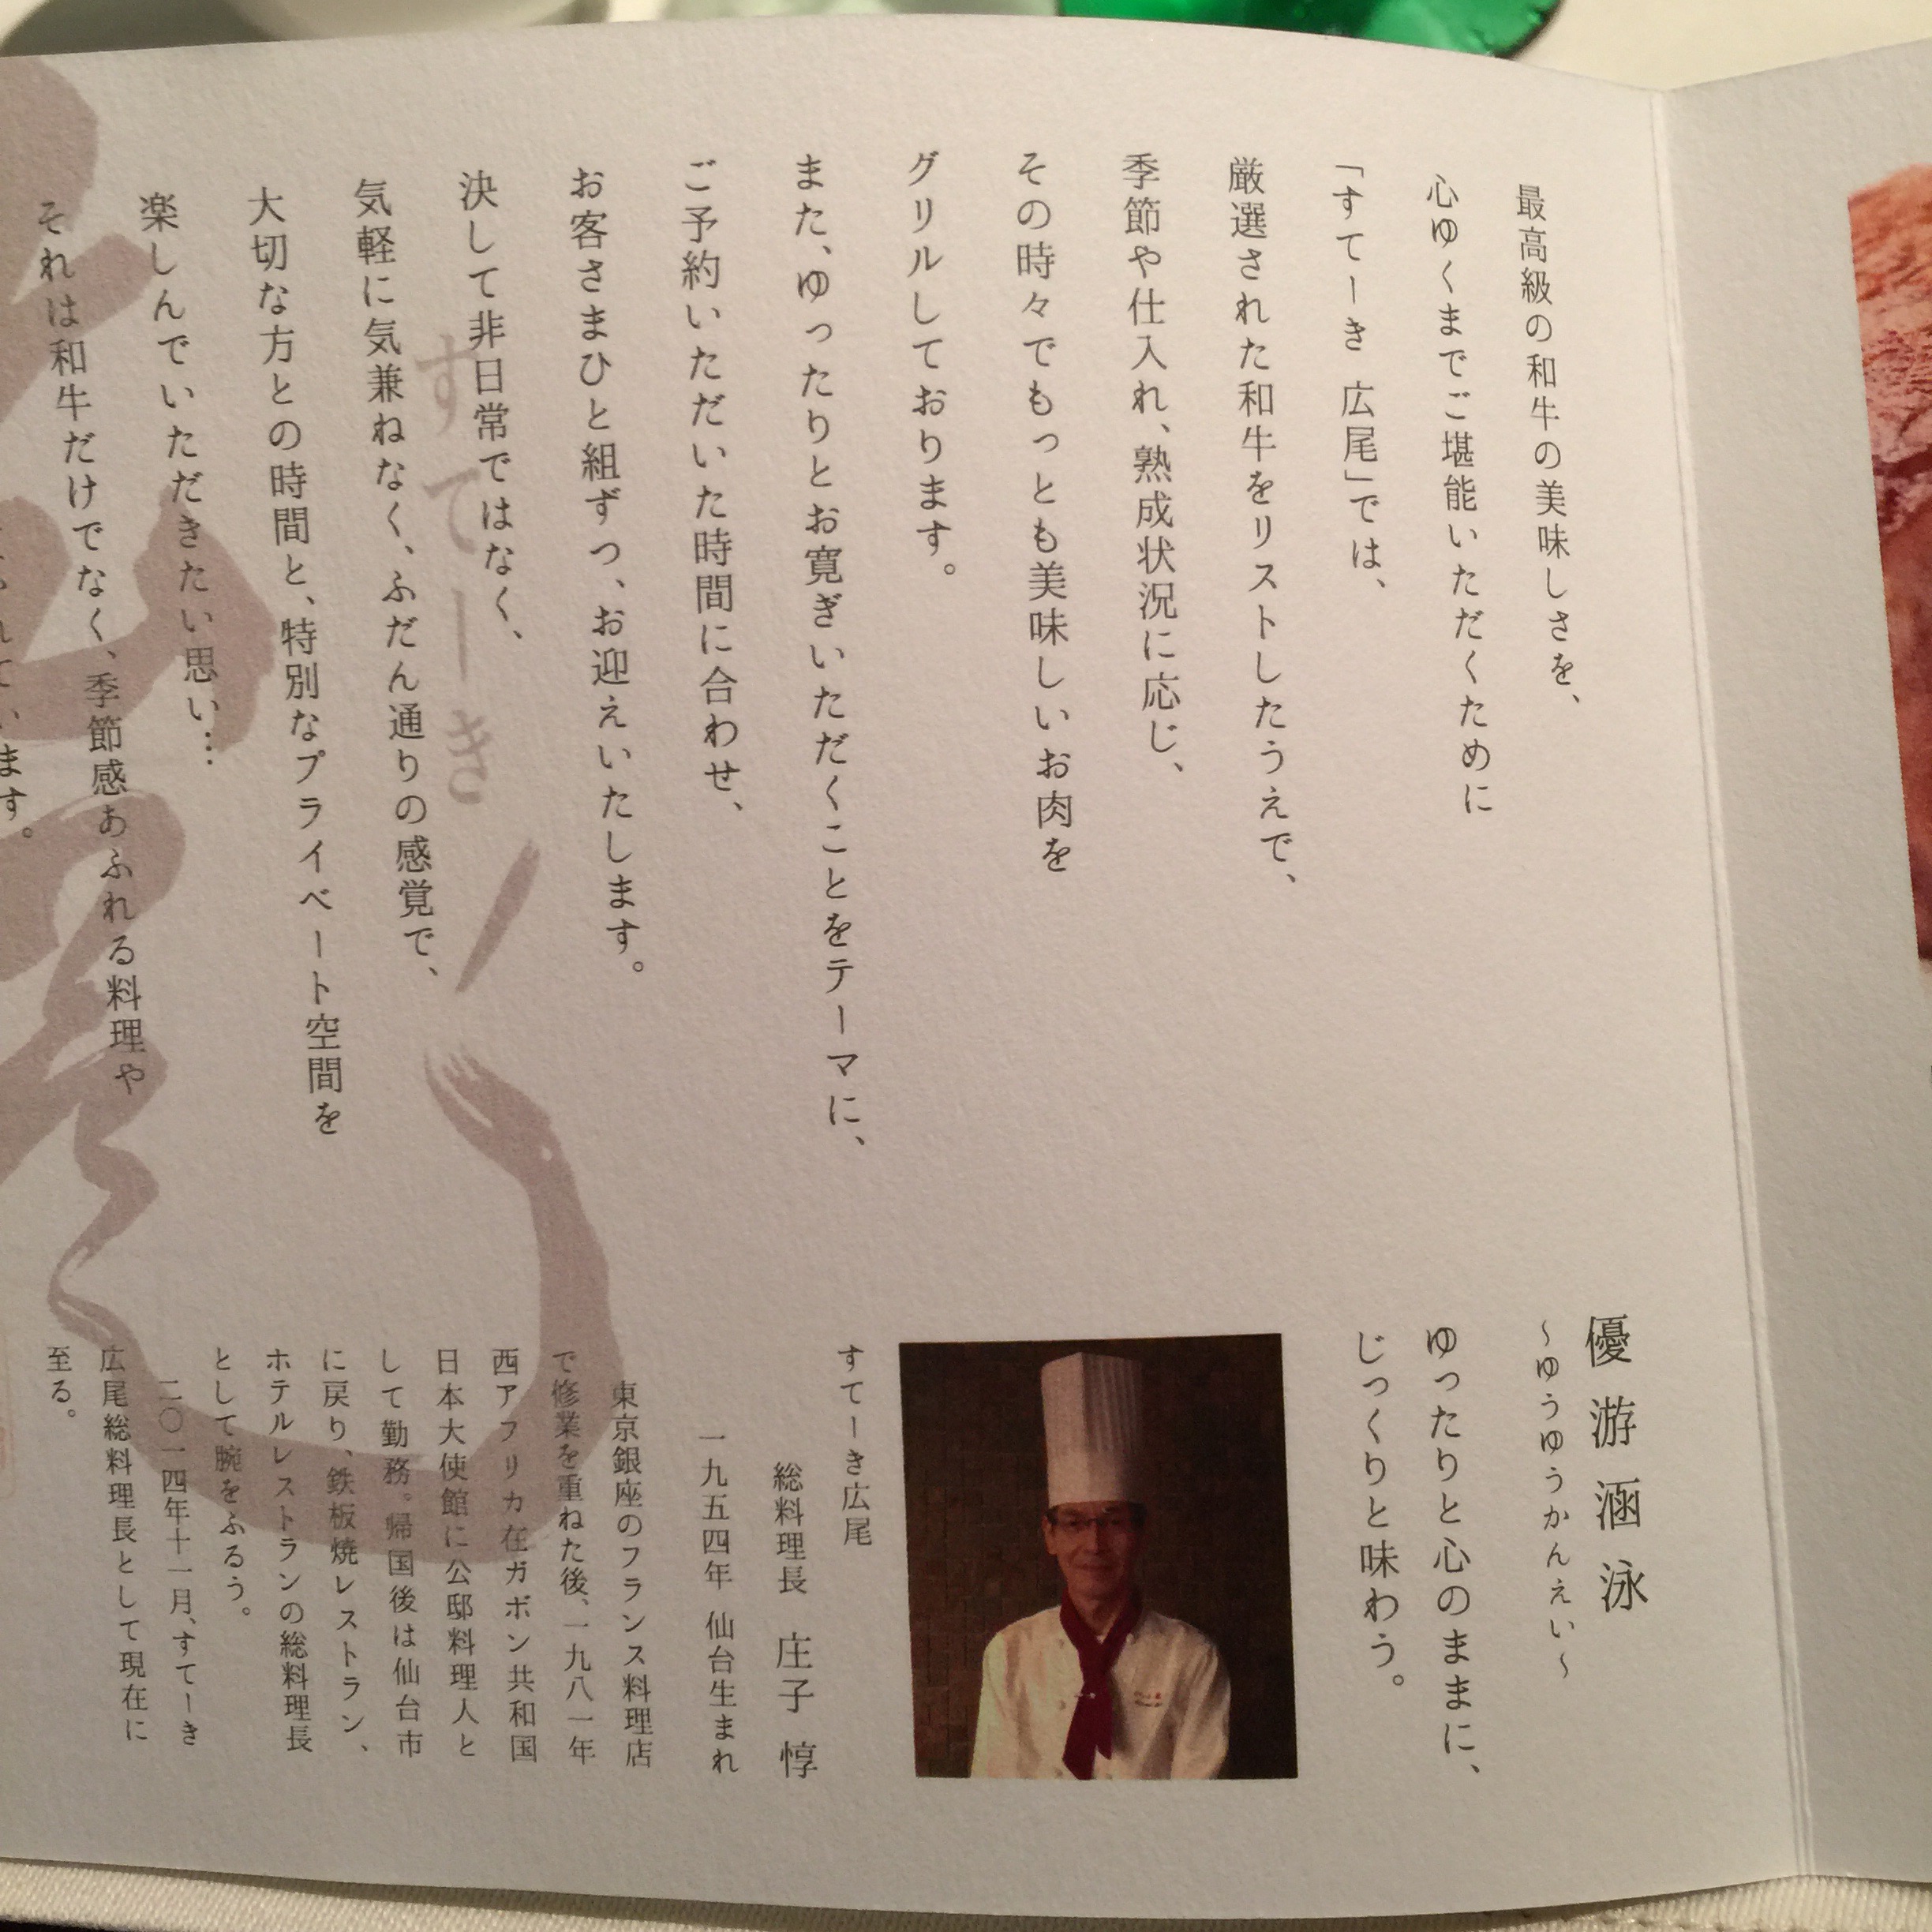 最高級の和牛の美味しさを、
心ゆくまでご堪能いただくために
「すてーき 広尾」では、
厳選された和牛をリストしたうえで、
季節や仕入れ、熟成状況に応じ、
その時々でもっとも美味しいお肉を
グリルしております。
また、ゆったりとお寛ぎいただくことをテーマに、
ご予約いただいた時間に合わせ、
お客さまひと組ずつ、お迎えいたします。
決して非日常ではなく、
気軽に気兼ねなく、ふだん通りの感覚で、
大切な方との時間と、特別なプライベート空間を
楽しんでいただきたい思い…
それは和牛だけでなく、季節感あふれる料理や
います。
すてーき
優游涵泳
~ゆうゆうかんえい~
ゆったりと心のままに、
じっくりと味わう。
すてーき広尾
総料理長 庄子 惇
一九五四年 仙台生まれ
東京銀座のフランス料理店
で修業を重ねた後、一九八一年
西アフリカ在ガボン共和国
日本大使館に公邸料理人と
して勤務。帰国後は仙台市
に戻り、鉄板焼レストラン、
ホテルレストランの総料理長
として腕をふるう。
二〇一四年十一月、すてーき
広尾総料理長として現在に
至る。